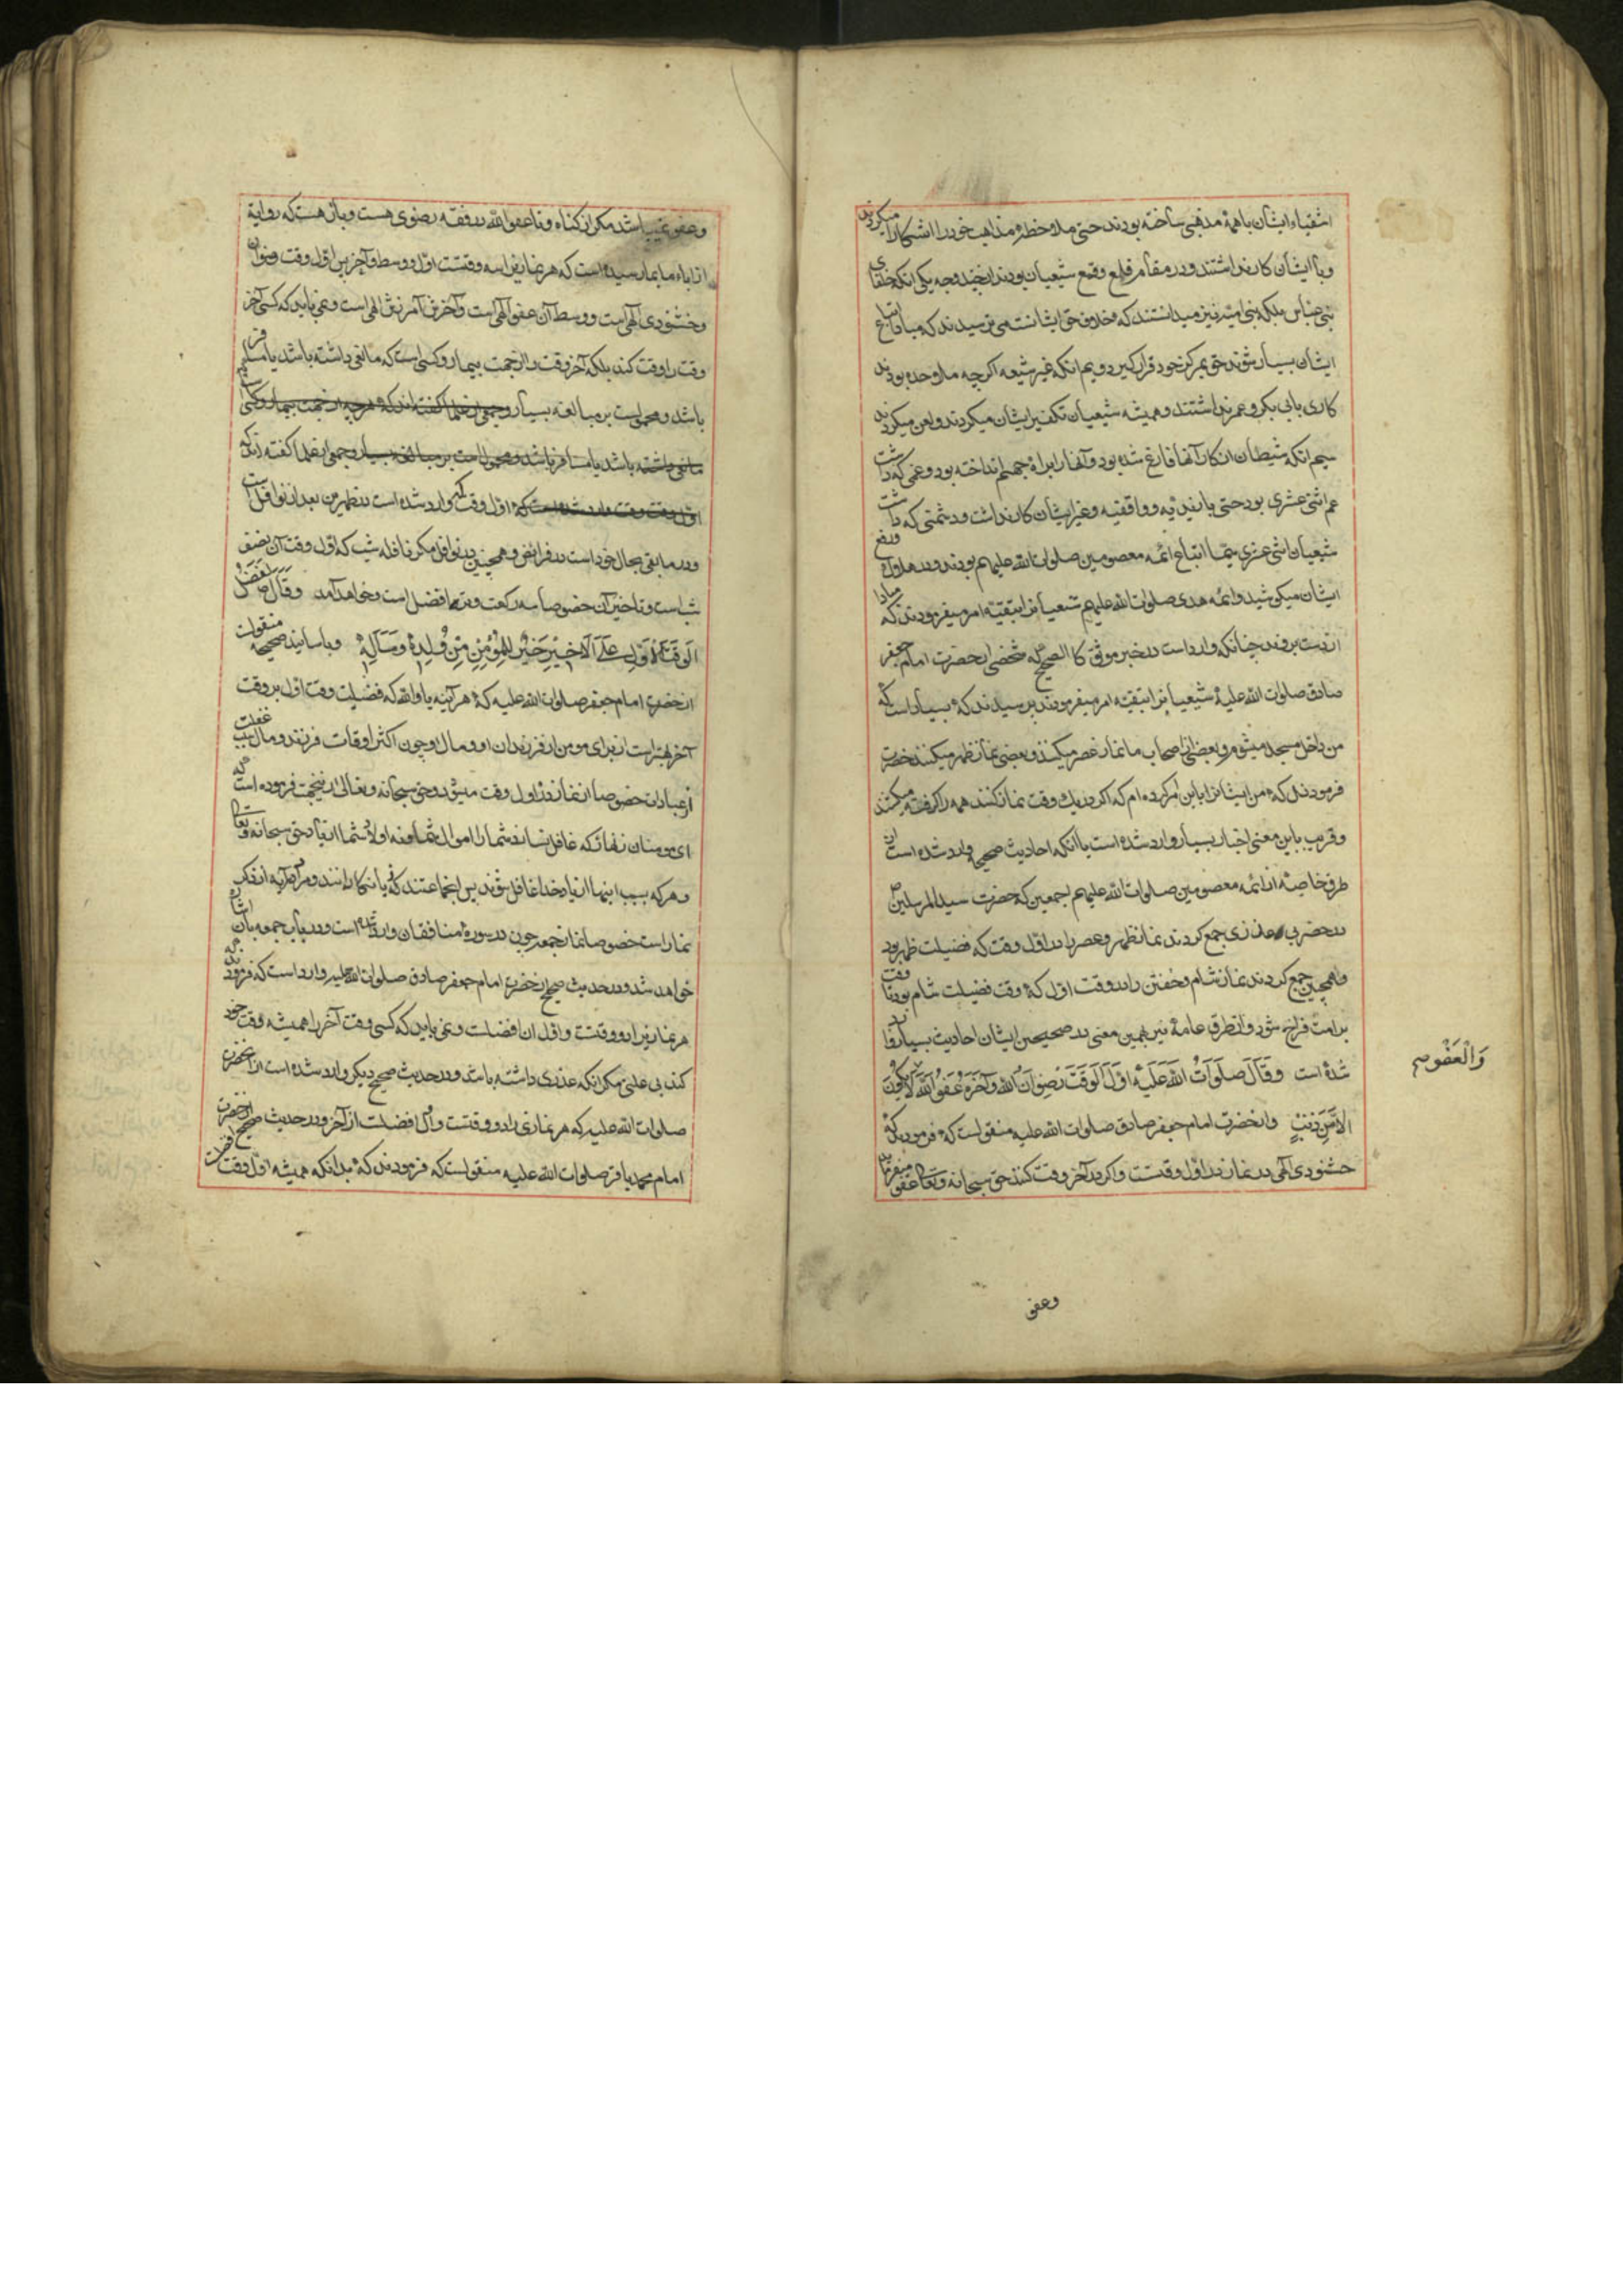 اشقیاء ایشان با همهٔ مذهبی ساخته بودند حتی ملاحظهٔ مذاهب خود را آشکارا میکردند
و با ایشان کار نداشتند و در مقام قلع و قمع شیعیان بودند از چند وجه یکی انکه خلفای
بنی عباس بلکه بنی امیه نیز میدانستند که خلافت حق ایشانست می ترسیدند که مبادا اتباع
ایشان بسیار شوند حق بمرکز خود قرار گیرد دویم انکه غیر شیعه اگر چه ملاحده بودند
کاری بابی بکر و عمر نداشتند و همیشه شیعیان تکفیر ایشان میکردند و لعن میکردند
سیم انکه شیطان از کار آنها فارغ شده بود و آنها را براه جهنم انداخته بود و غمی که داشت
غم اثنی عشری بود حتی با زیدیه و واقفیه و غیر ایشان کار نداشت و دشمنی که داشت
شیعیان اثنی عشری سیما اتباع ائمه معصومین صلوات الله علیهم بودند و در هلاک و دفع
ایشان میکوشید و ائمه هدی صلوات الله علیهم شیعیان را بتقیه امر میفرمودند که مبادا
از دست بروند چنانکه وارد است در خبر موثق کالصحیح که شخصی از حضرت امام جعفر
صادق صلوات الله علیه شیعیان را بتقیه امر میفرمودند پرسیدند که بسیار است که
من داخل مسجد میشوم و بعضی از اصحاب ما نماز عصر میکنند و بعضی نماز ظهر میکنند حضرت
فرمودند که من ایشانرا باین امر کرده ام که اگر در یک وقت نماز کنند همه را گرفته میکشند
و قریب باین معنی اخبار بسیار وارد شده است با آنکه احادیث صحیحه وارد شده است از
طرق خاصه از ائمه معصومین صلوات الله علیهم اجمعین که حضرت سید المرسلین ص
در حضر بی عذری جمع کردند نماز ظهر و عصر را در اول وقت که فضیلت ظهر بود
و همچنین جمع کردند نماز شام و خفتن را در وقت اول که وقت فضیلت شام بود تا وقت
بر امت فراخ شود و از طرق عامه نیز بهمین معنی در صحیحین ایشان احادیث بسیار وارد
شده است وَقَالَ صَلَوَاتُ اللهِ عَلَيْهِ اَوَّلُ الْوَقْتِ رِضْوَانُ اللهِ وَآخِرُهُ عَفْوُ اللهِ لَا يَكُونُ
اِلَّا مِنْ ذَنْبٍ و از حضرت امام جعفر صادق صلوات الله علیه منقولست که فرمودند که
خشنودی الهی در نماز در اول وقتست و اگر در آخر وقت کنند حق سبحانه و تعالی عفو میفرماید
وَالْعَفْوُ صح
وعفو
و عفو نمیباشد مگر از گناه و تا عفو الله در فقه رضوی هست و بآن هست که روایة
از اباء ما بما رسیده است که هر نماز را سه وقتست اول و وسط و آخر پس اول وقت رضوان
و خشنودی الهی است و وسط آن عفو الهی است و آخرش آمرزش الهی است و نمی باید که کسی آخر
وقت را وقت کند بلکه آخر وقت را از جهت بیمار و کسی است که مانعی داشته باشد یا مسافر
باشد و محمول است بر مبالغه بسیار و جمعی از علما گفته اند که هرچه از جهت بیمار و کسی
مانعی داشته باشد یا مسافر باشد و محمول است بر مبالغه بسیار و جمعی از علما گفته اند که
اول وقت وقت وارد شده است که اول وقت که وارد شده است در ظهرین بعد از نوافل است
و در مابقی بحال خود است در فرائض و همچنین در نوافل مگر نافله شب که اول وقت آن نصف
شب است و تاخیر آن خصوصا سه رکعت وتر افضل است و خواهد آمد وَقَالَ ص لَفَضْلُ
الْوَقْتِ الْاَوَّلِ عَلَى الْاَخِيْرِ خَيْرٌ لِلْمُؤْمِنِ مِنْ وُلْدِهِ وَمَالِهِ و باسانید صحیحه منقولست
از حضرت امام جعفر صلوات الله علیه که هر آینه یا والله که فضیلت وقت اول بر وقت
آخر بهتر است از برای مومن از فرزندان او و مال او چون اکثر اوقات فرزند و مال سبب غفلت
از عبادات خصوصا از نماز در اول وقت میشود و حق سبحانه و تعالی از این جهت فرموده است که
ای مومنان زنهار که غافل نسازد شما را اموال شما و نه اولاد شما از یاد حق سبحانه و تعالی
و هر که بسبب اینها از یاد خدا غافل شوند پس انجماعتند که زیانکارانند و مراد آیه از ذکر
نماز است خصوصا نماز جمعه چون در سورهٔ منافقان وارد شده است و در باب جمعه بآن اشاره
خواهد شد و در حدیث صحیح از حضرت امام جعفر صادق صلوات الله علیه وارد است که فرمودند که
هر نماز را دو وقتست و اول ان افضلست و نمی باید که کسی وقت آخر را همیشه وقت خود
کند بی علتی مگر انکه عذری داشته باشد و در حدیث صحیح دیگر وارد شده است از انحضرت
صلوات الله علیه که هر نمازی را دو وقتست و اول افضلست از آخر و در حدیث صحیح از حضرت
امام محمد باقر صلوات الله علیه منقولست که فرمودند که بدانکه همیشه اول وقت افضلست